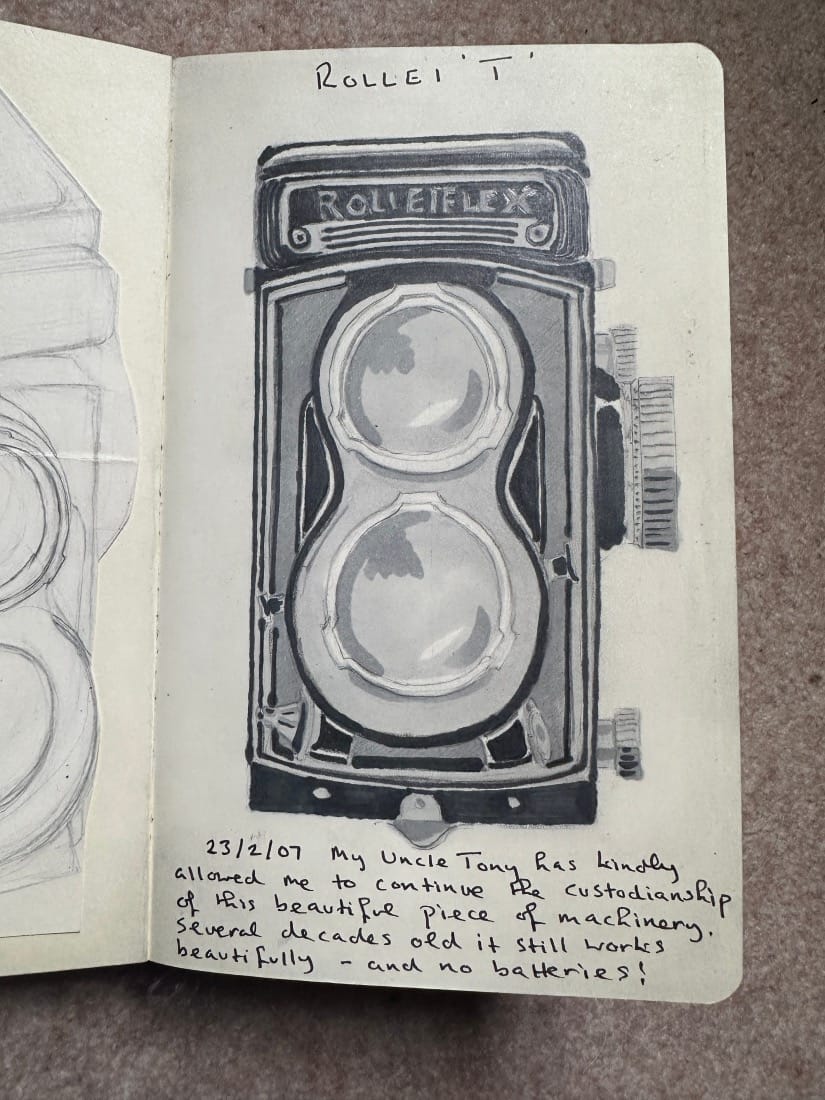 ROLLEI 'T'
ROLLEIFLEX
23/2/07 My Uncle Tony has kindly
allowed me to continue the custodianship
of this beautiful piece of machinery.
Several decades old it still works
beautifully - and no batteries!